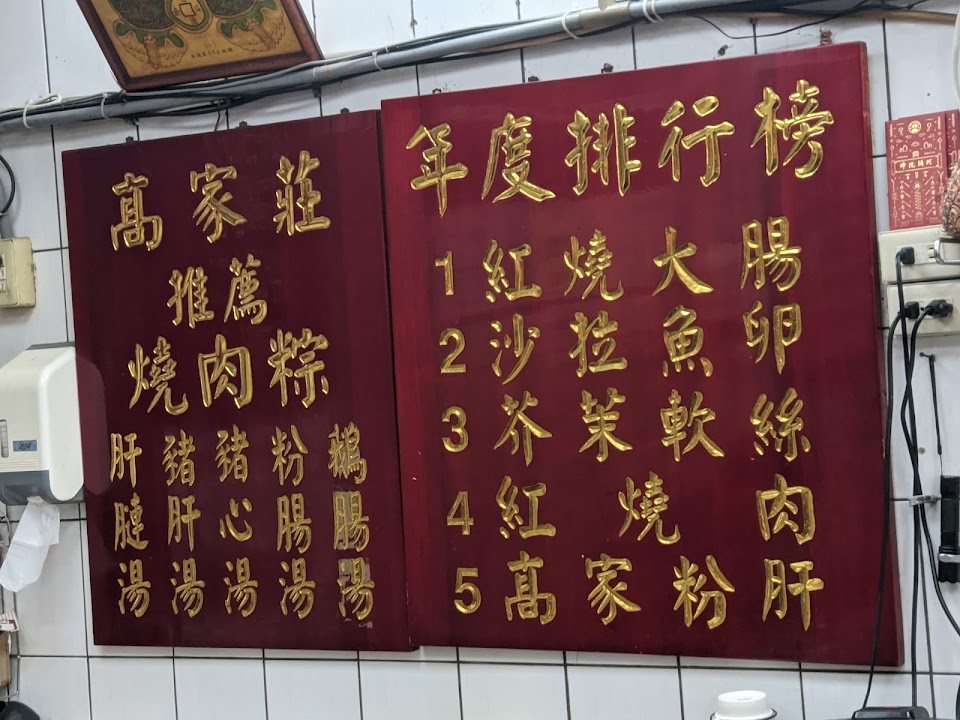 高家莊
推薦
燒肉粽
鵝腸湯
粉腸湯
豬心湯
豬肝湯
肝湯
年度排行榜
1 紅燒大腸
2 沙拉魚卵
3 芥茉軟絲
4 紅燒肉
5 高家粉肝